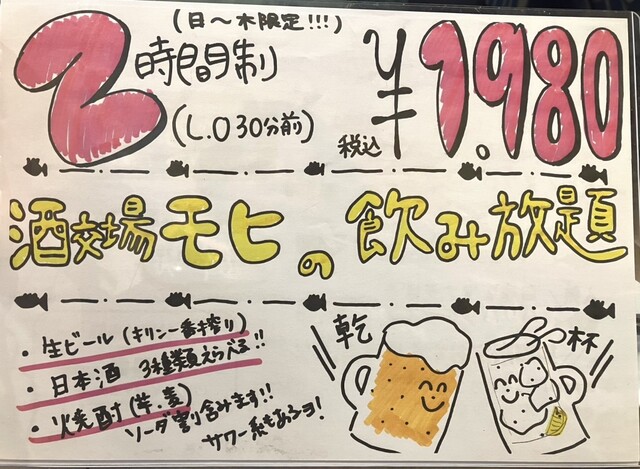 (日～木限定!!!)
2時間制
(L.O 30分前)
税込 ¥1.980
酒交場モヒの飲み放題
・生ビール (キリン一番搾り)
・日本酒 3種類えらべる!!
・焼酎 (芋・麦)
ソーダ割り含みます!!
サワー系もあるヨ!
乾杯